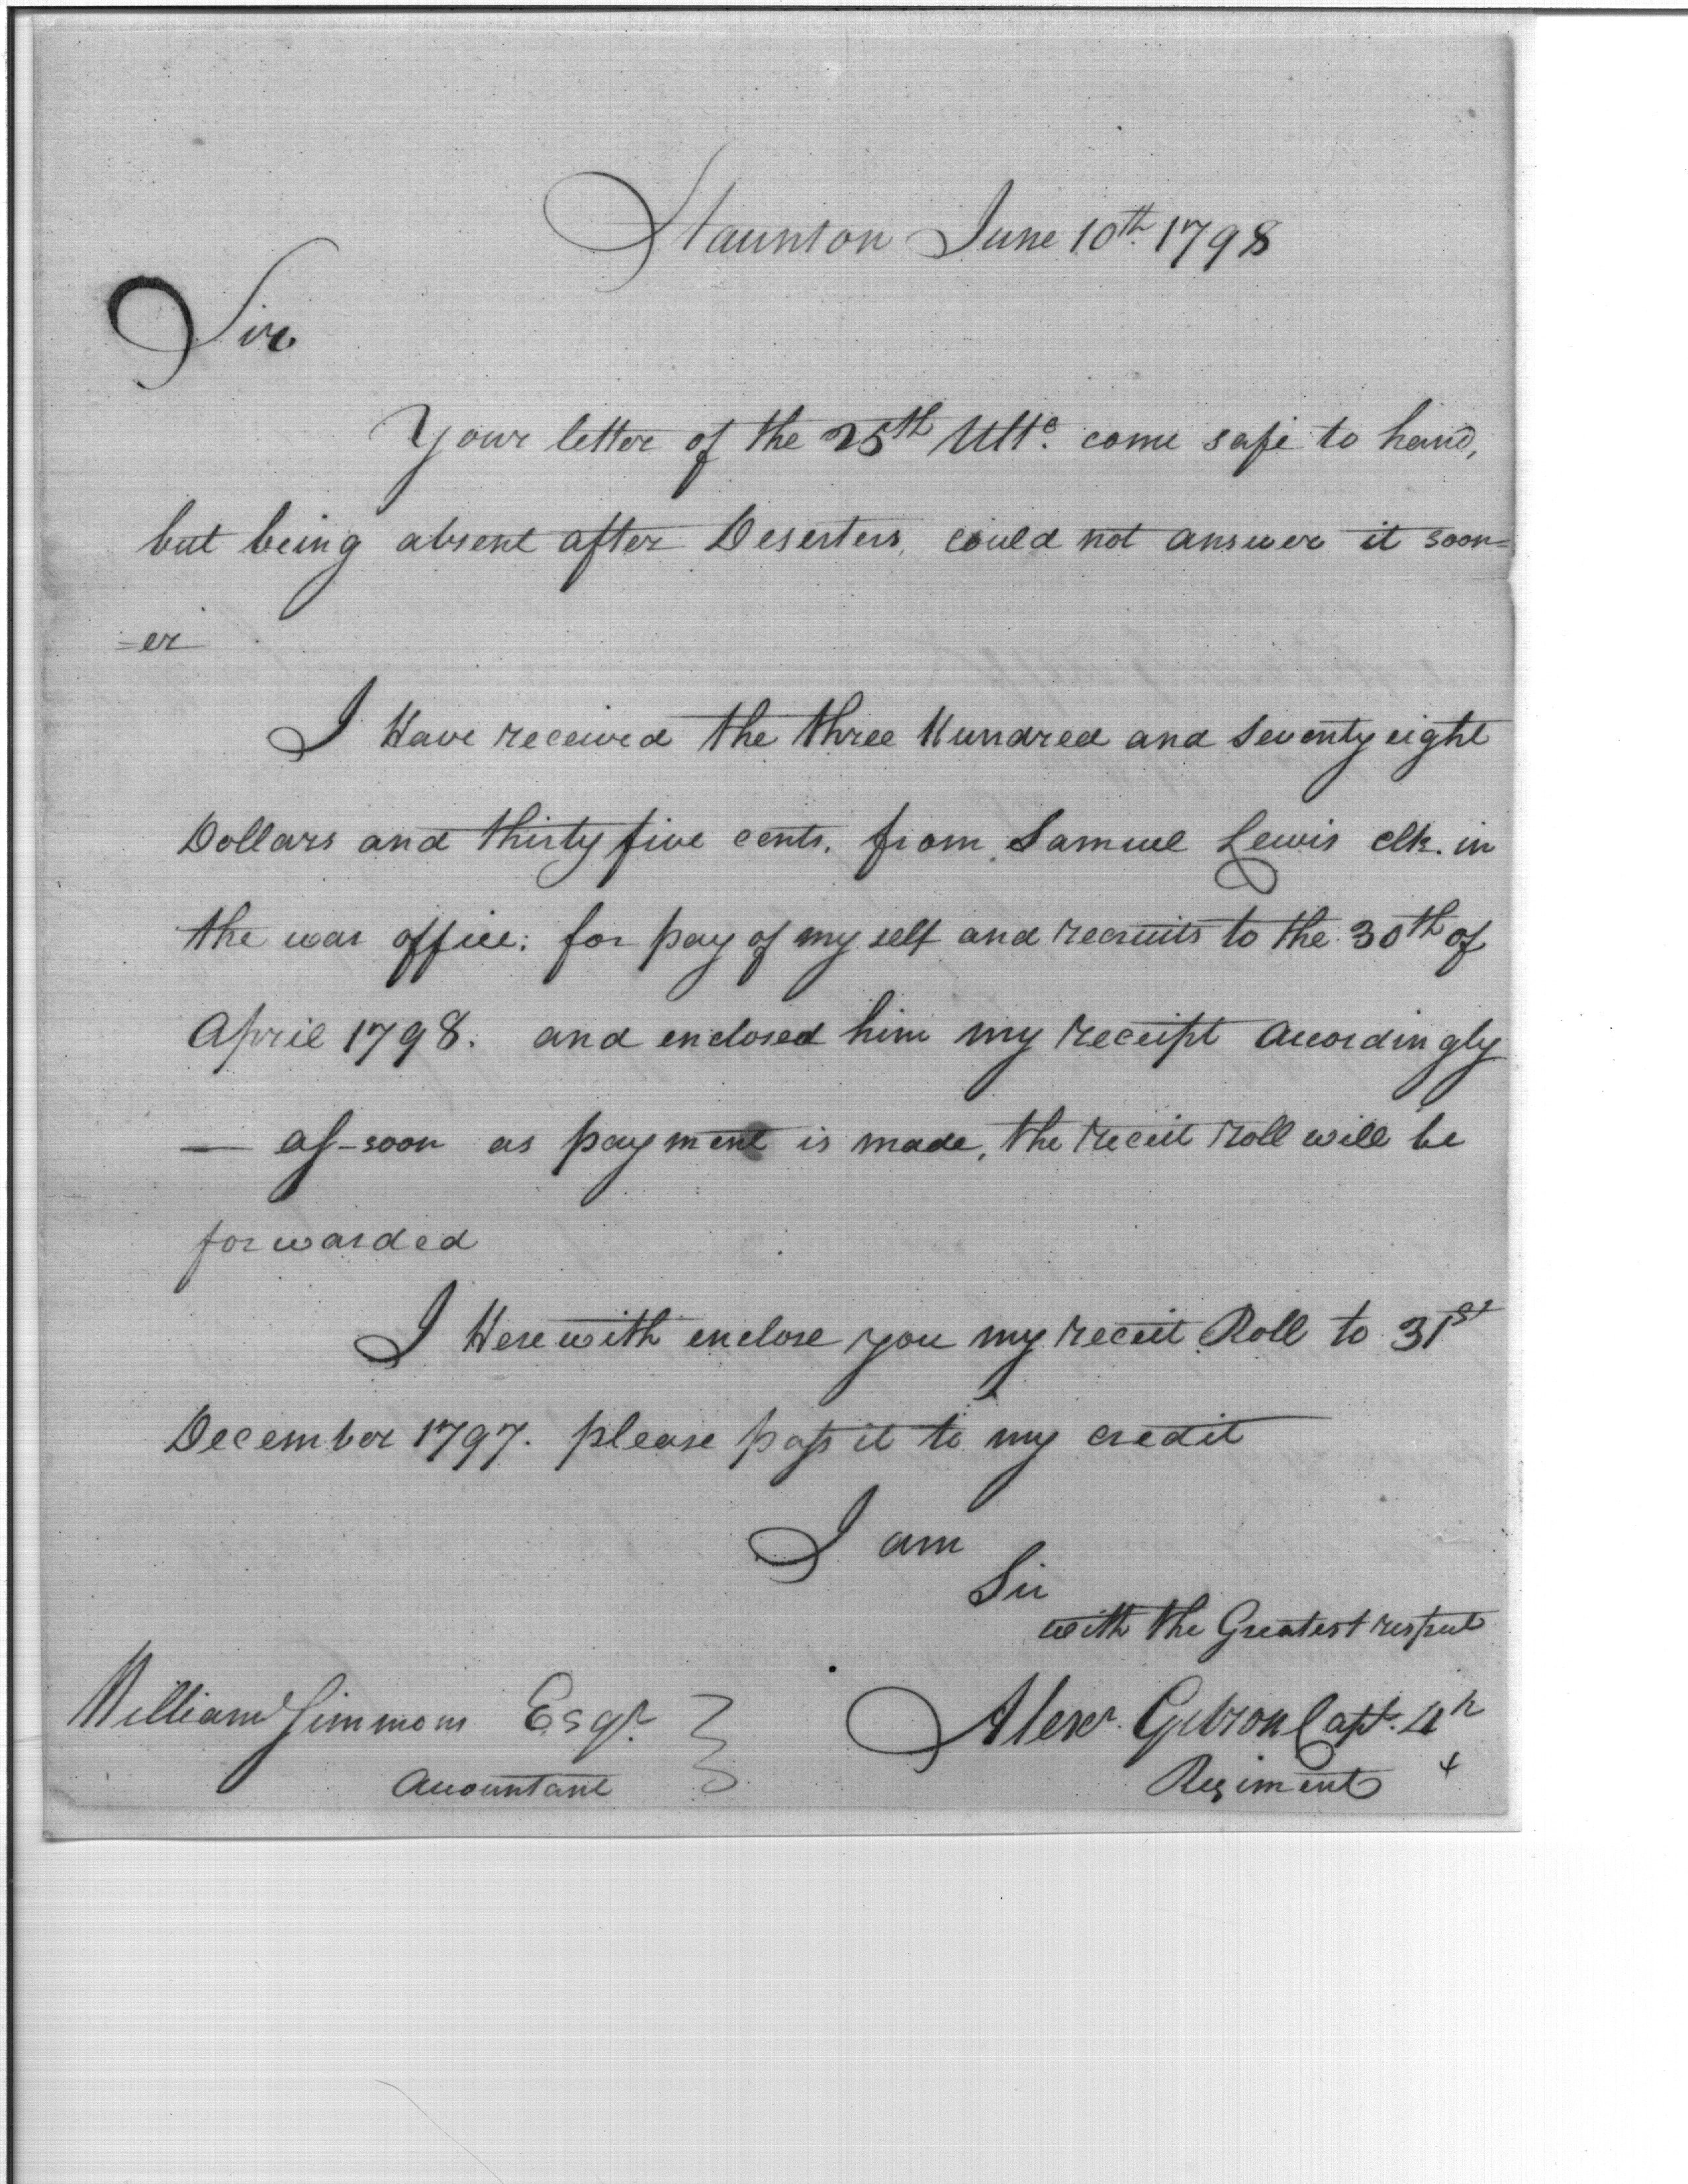 Staunton June 10th. 1798
Sir
Your letter of the 25th Ulto. come safe to hand,
but being absent after Deserters, could not answer it soon=
=er
I Have received the three Hundred and seventy eight
Dollars and thirty five cents. from Samuel Lewis clk. in
the war office; for pay of my self and recruits to the 30th of
April 1798. and enclosed him my receipt accordingly
— as-soon as payment is made, the receit roll will be
forwarded
I Herewith enclose you my receit Roll to 31st
December 1797. please pass it to my credit
I am
Sir
with the Greatest respect
William Simmons Esqr.
Accountant
Alexr. Gibson Capt. 4th
Regiment